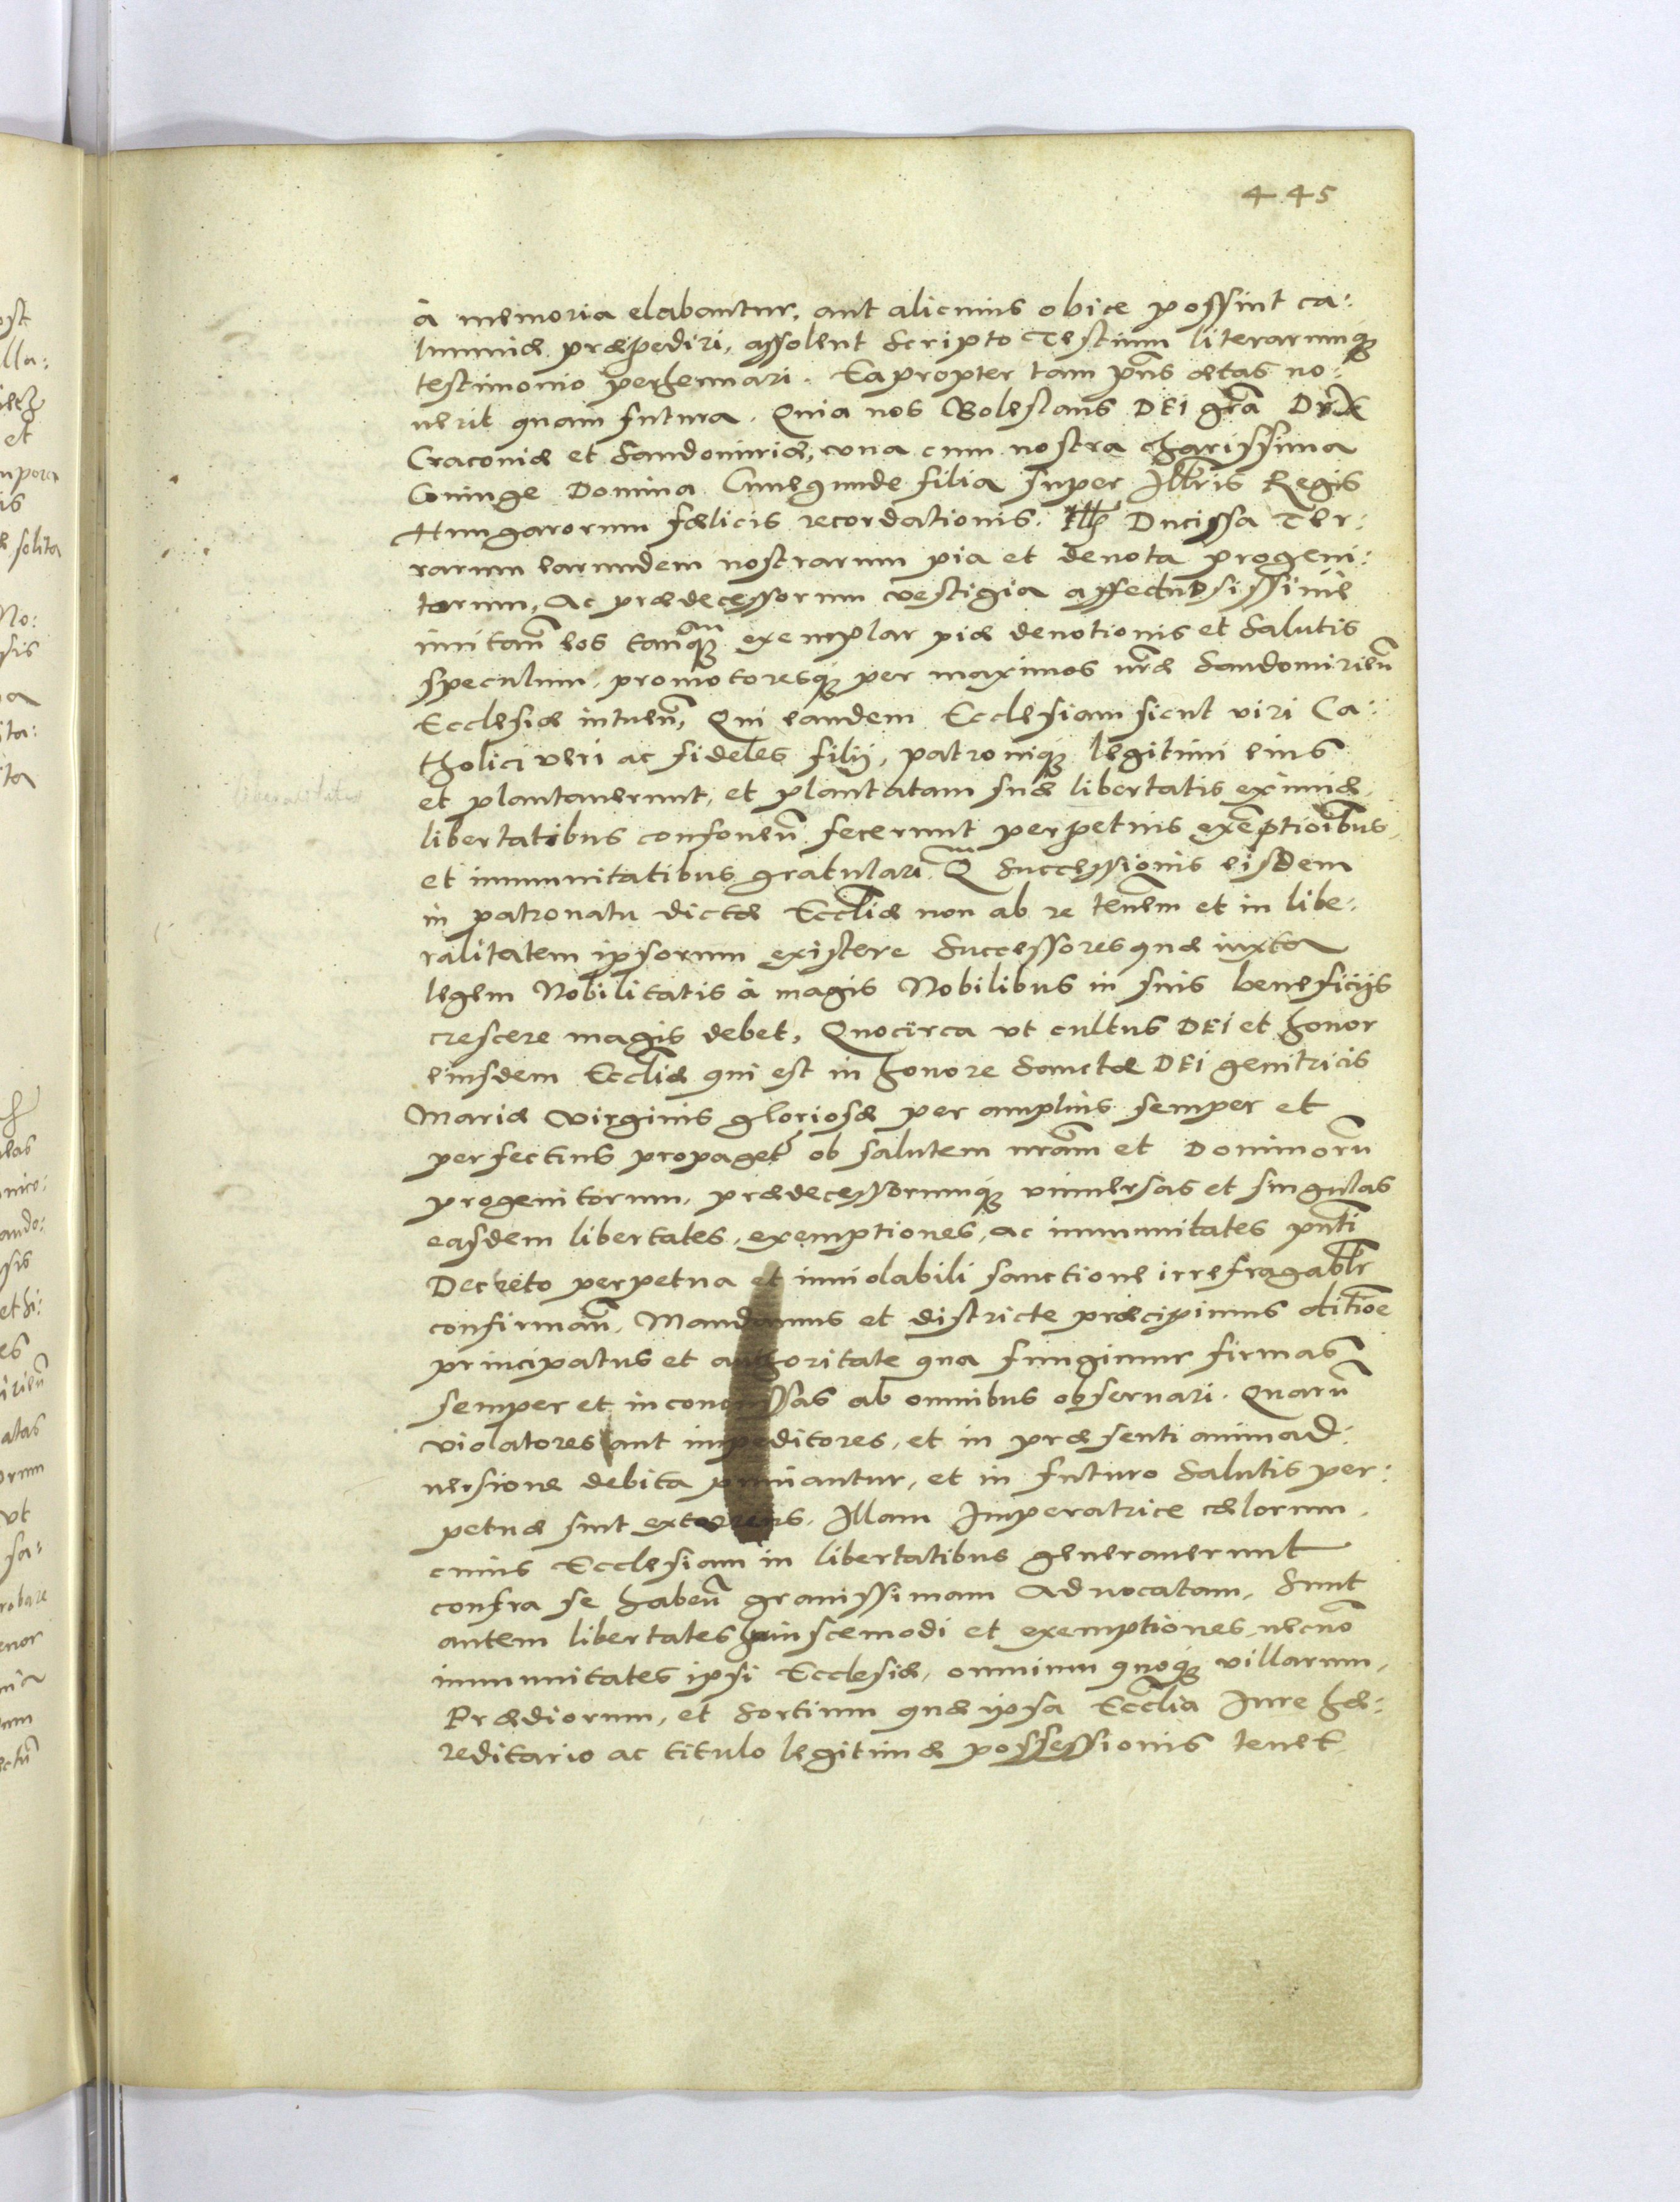 445
à memoria elabantur, aut alicuius obice possint ca:
lumniæ præpediri, assolent Scripto Testium literarumq₃
testimonio perhennari. Eapropter tam pñs ætas no:
uerit quam futura. Quia nos Boleslaus DEI gr̃a Dux
Cracouiæ et Sandomiriæ, vna cum nostra charissima
Coniuge Domina Cunegunde filia super Ill̃ris Regis
Hungarorum fœlicis recordationis. Ducissa Ter:
rarum earundem nostrarum pia et deuota progeni:
torum, Ac prædecessorum vestigia affectuosissime
imitañ eos tanquam exemplar piæ deuotionis et Salutis
speculum, promotoresq₃ per maximos nr̃æ Sandomirieñ
Ecclesiæ intueñ, Qui eandem Ecclesiam sicut viri Ca:
tholici veri ac fideles filij, patroniq₃ legitimi eius
et plantauerunt, et plantatam suæ libertatis eximiæ
libertatibus confoueñ fecerunt perpetuis exẽptioĩbus
et immunitatibus gratulari. Qm̃ Successionis eisdem
in patronatu dictæ Eccl̃iæ non ab re tenem̃ et in libe:
ralitatem ipsorum existere Successores quæ iuxta
legem Nobilitatis à magis Nobilibus in suis beneficijs
crescere magis debet, Quocirca vt cultus DEI et honor
eiusdem Eccl̃iæ qui est in honore Sanctæ DEI genitricis
Mariæ Virginis gloriosæ per amplius semper et
perfectius propaget̃ ob salutem nr̃am et Dominorũ
progenitorum, prædecessorumq₃ vniuersas et singulas
easdem libertates, exemptiones, ac immunitates pñti
Decreto perpetua et inuiolabili sanctione irrefragabl̃r
confirmañ, Mandamus et districte præcipimus
principatus et authoritate qua fungimur firmas
semper et inconcussas ab omnibus obseruari. Quarũ
violatores aut impeditores, et in præsenti animad:
uersione debita puniantur, et in futuro Salutis per:
petuæ sint extorres. Illam Imperatrice cælorum
cuius Ecclesiam in libertatibus generauerunt
confra se habeñ grauissimam Aduocatam, Sunt
autem libertates huiuscemodi et exemptiones necnõ
immunitates ipsi Ecclesiæ, omnium quoq₃ villarum,
Prædiorum, et Sortium quæ ipsa Eccl̃ia Iure hæ:
reditario ac titulo legitimæ possessionis tenet